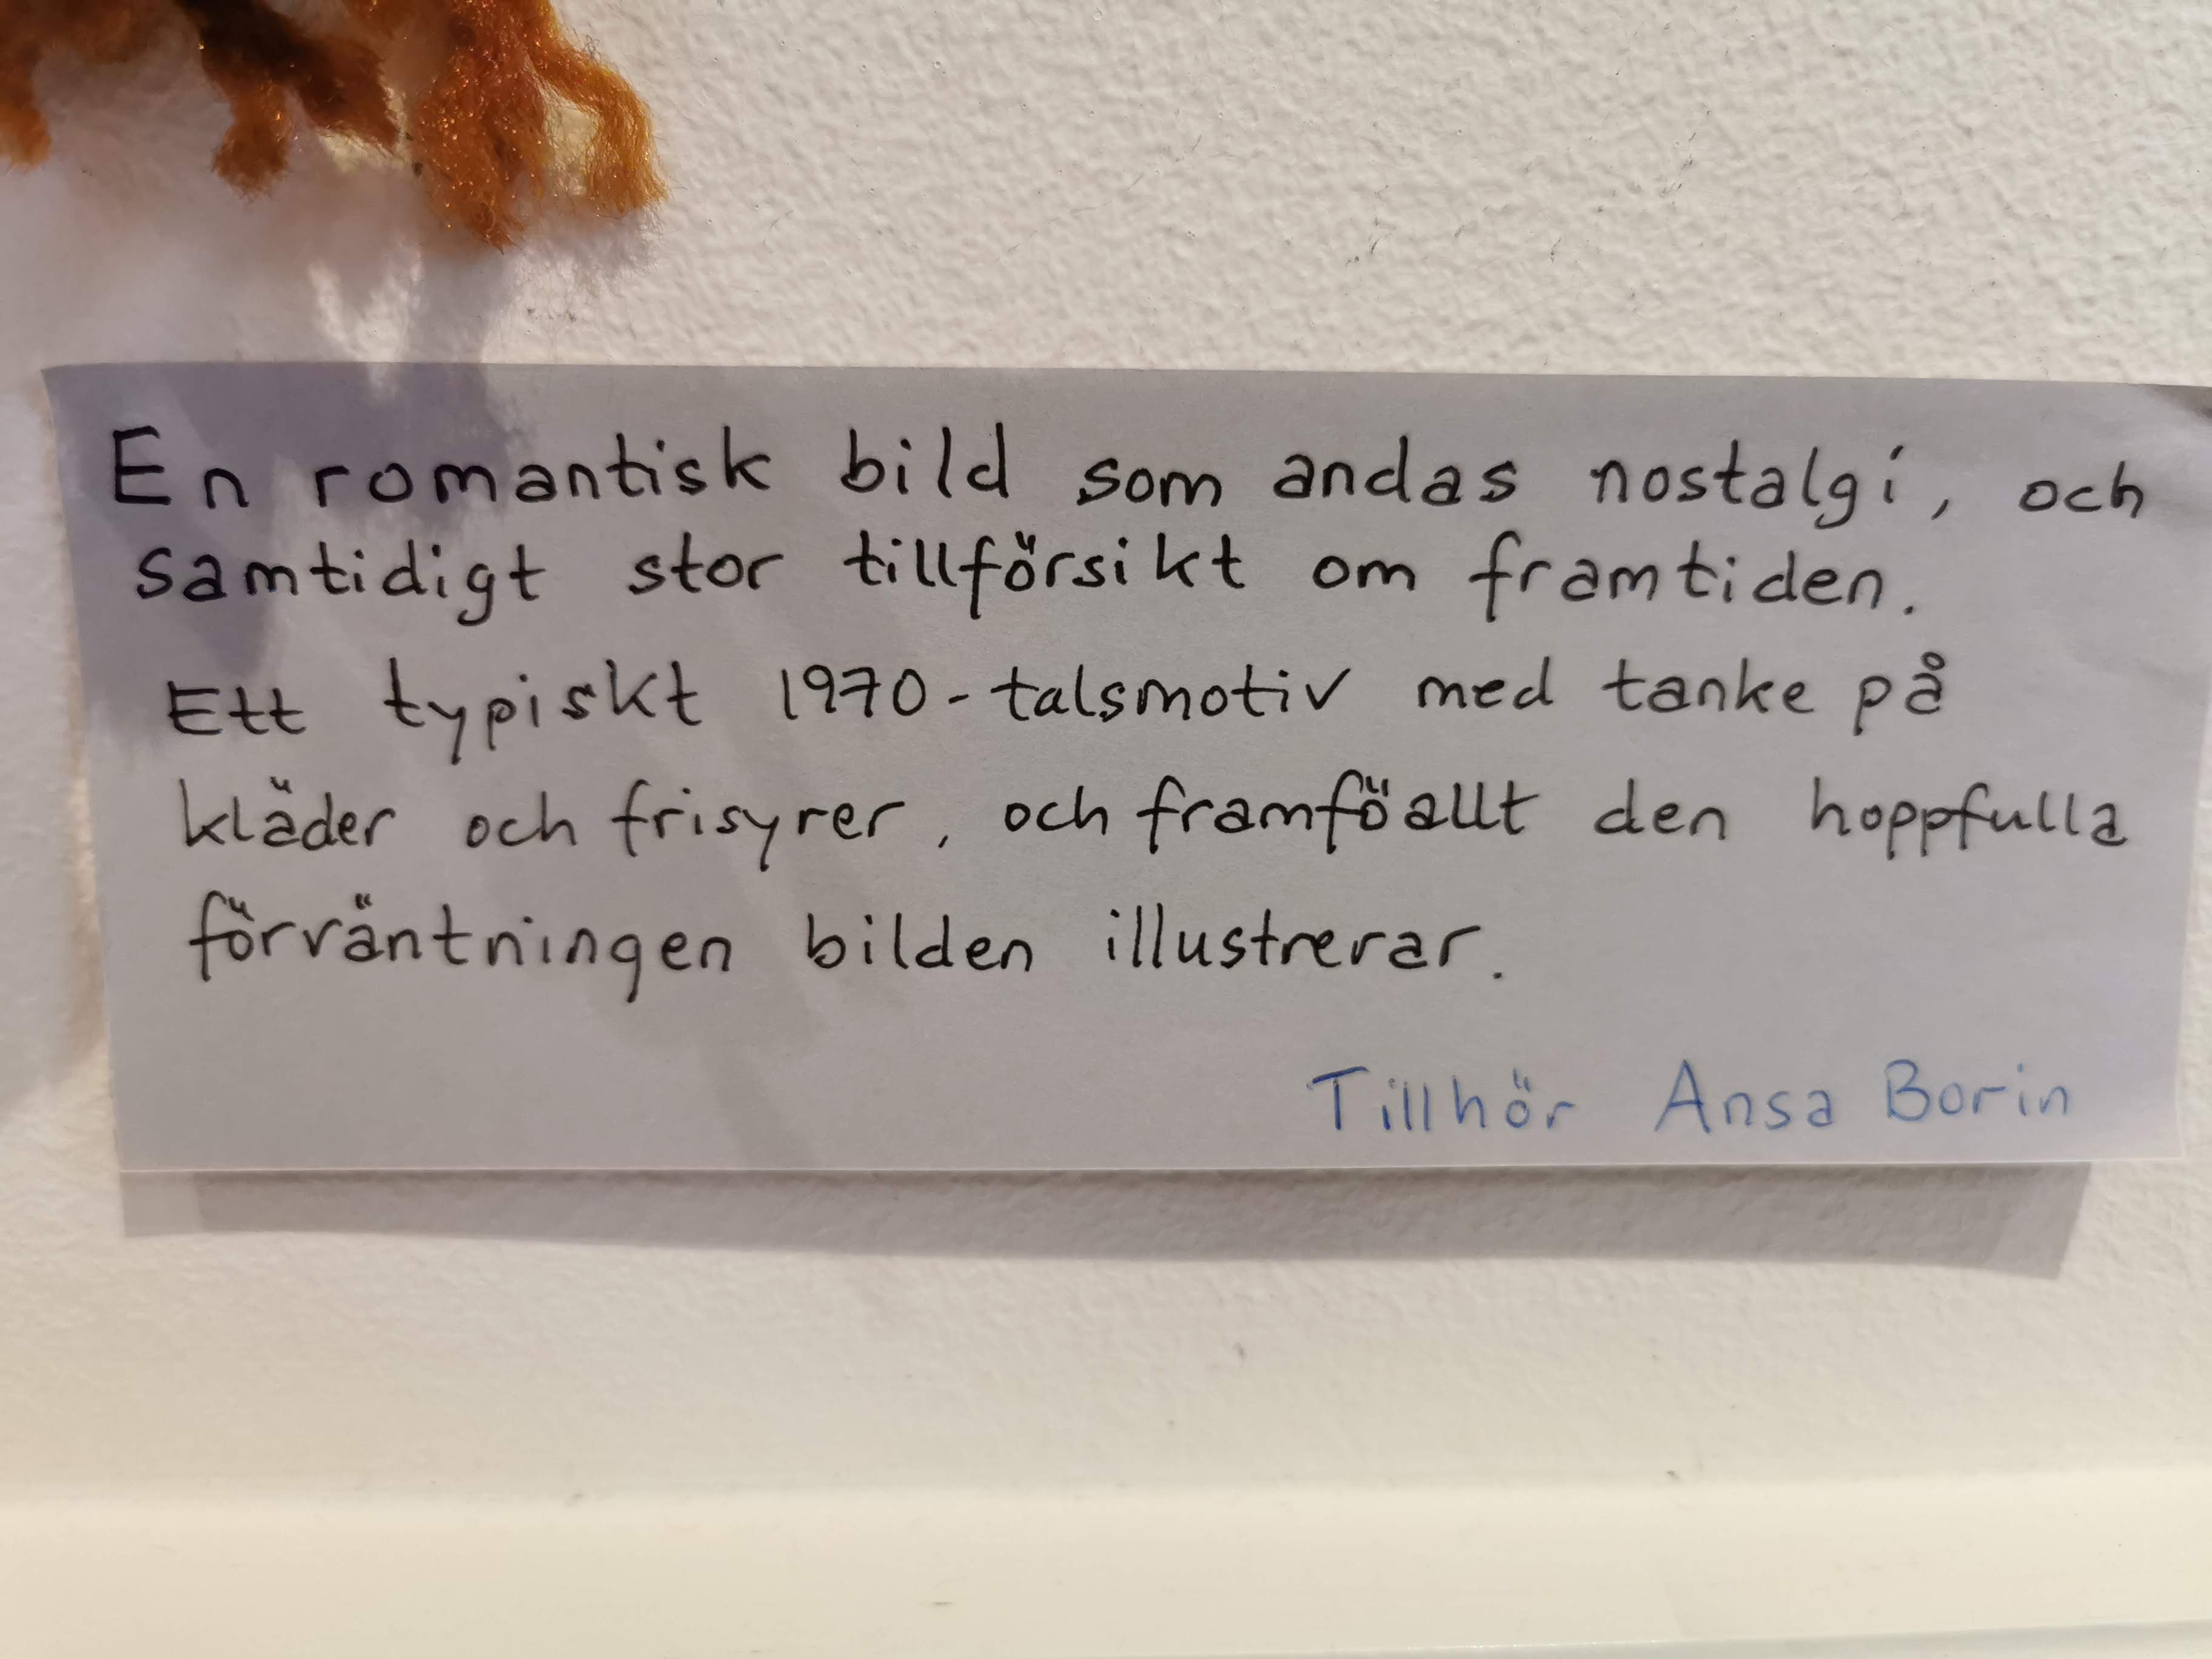 En romantisk bild som andas nostalgi, och
samtidigt stor tillförsikt om framtiden.
Ett typiskt 1970-talsmotiv med tanke på
kläder och frisyrer, och framföallt den hoppfulla
förväntningen bilden illustrerar.
Tillhör Ansa Borin